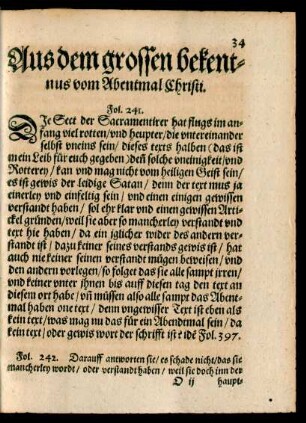 34
Aus dem grossen bekent-
nus vom Abentmal Christi.
Fol. 241.
DJe Sect der Sacramentirer hat flugs im an-
fang viel rotten/vnd heupter/die vntereinander
selbst vneins sein/dieses texts halben (das ist
mein Leib für euch gegeben) deñ solche vneinigkeit/vnd
Rotterey/kan vnd mag nicht vom heiligen Geist sein/
es ist gewis der leidige Satan/denn der text mus ja
einerley vnd einfeltig sein/vnd einen einigen gewissen
verstand haben/sol ehr klar vnd einen gewissen Arti-
ckel gründen/weil sie aber so mancherley verstandt vnd
text hie haben/da ein jglicher wider des andern ver-
standt ist/dazu keiner seines verstands gewis ist/hat
auch nie keiner seinen verstandt mügen beweisen/vnd
den andern vorlegen/so folget das sie alle sampt irren/
vnd keiner vnter jhnen bis auff diesen tag den text an
diesem ort habe/vñ müssen also alle sampt das Abent-
mal haben one text/denn vngewisser Text ist eben als
kein text/was mag nu das für ein Abendtmal sein/da
kein text/oder gewis wort der schrifft ist? idẽ Fol. 397.
Fol. 242. Darauff antworten sie/es schade nicht/das sie
mancherley wordt/oder verstandt haben/weil sie doch inn der
O ij haupt-